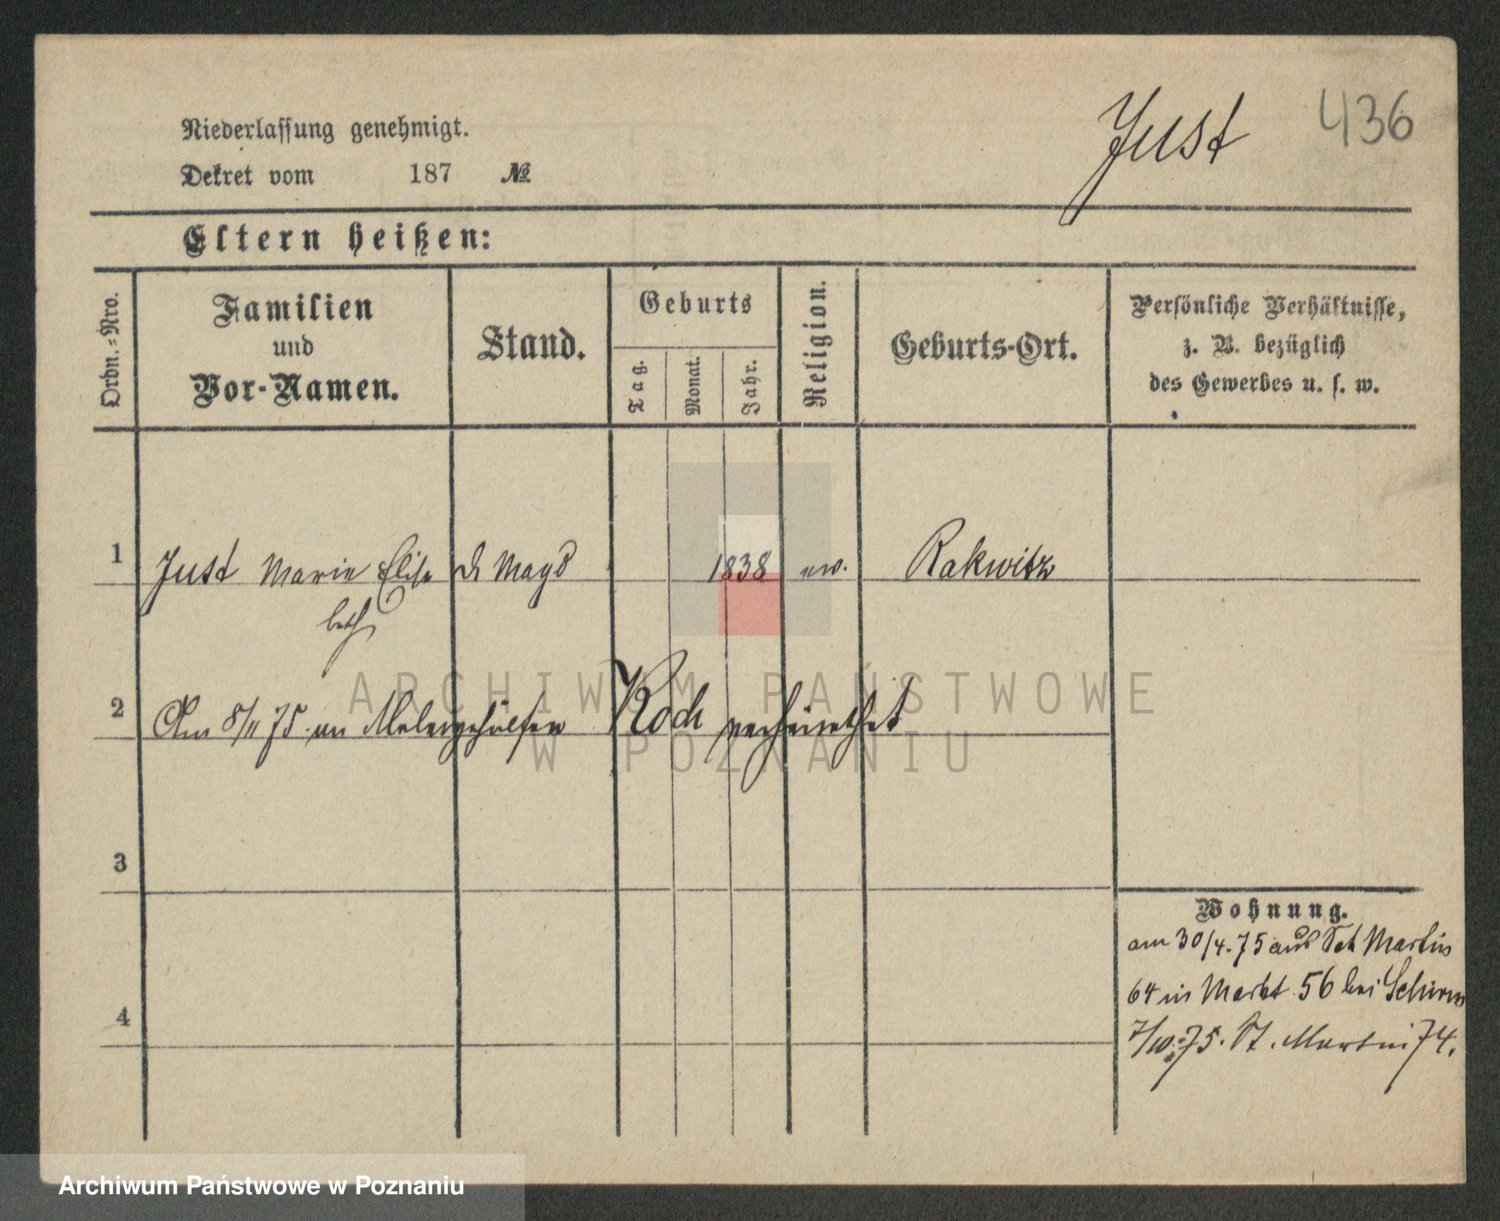 Niederlassung genehmigt.
Just
436
Dekret vom 187 №
Eltern heißen:
Ordn.-Nro.
Familien
und
Vor-Namen.
Stand.
Geburts
Tag.
Monat.
Jahr.
Religion.
Geburts-Ort.
Persönliche Verhältnisse,
z. B. bezüglich
des Gewerbes u. s. w.
1 Just Marie Elisa d Magd 1838 ev. Rakwitz
beth
2 Am 8/11 75 an Malergehülfen Koch verheirathet
3
4
Wohnung.
am 30/4.75 aus Sct Martin
64 in Markt 56 bei Schirm
7/10.75. St. Martin 74.
ARCHIWUM PAŃSTWOWE
W POZNANIU
Archiwum Państwowe w Poznaniu